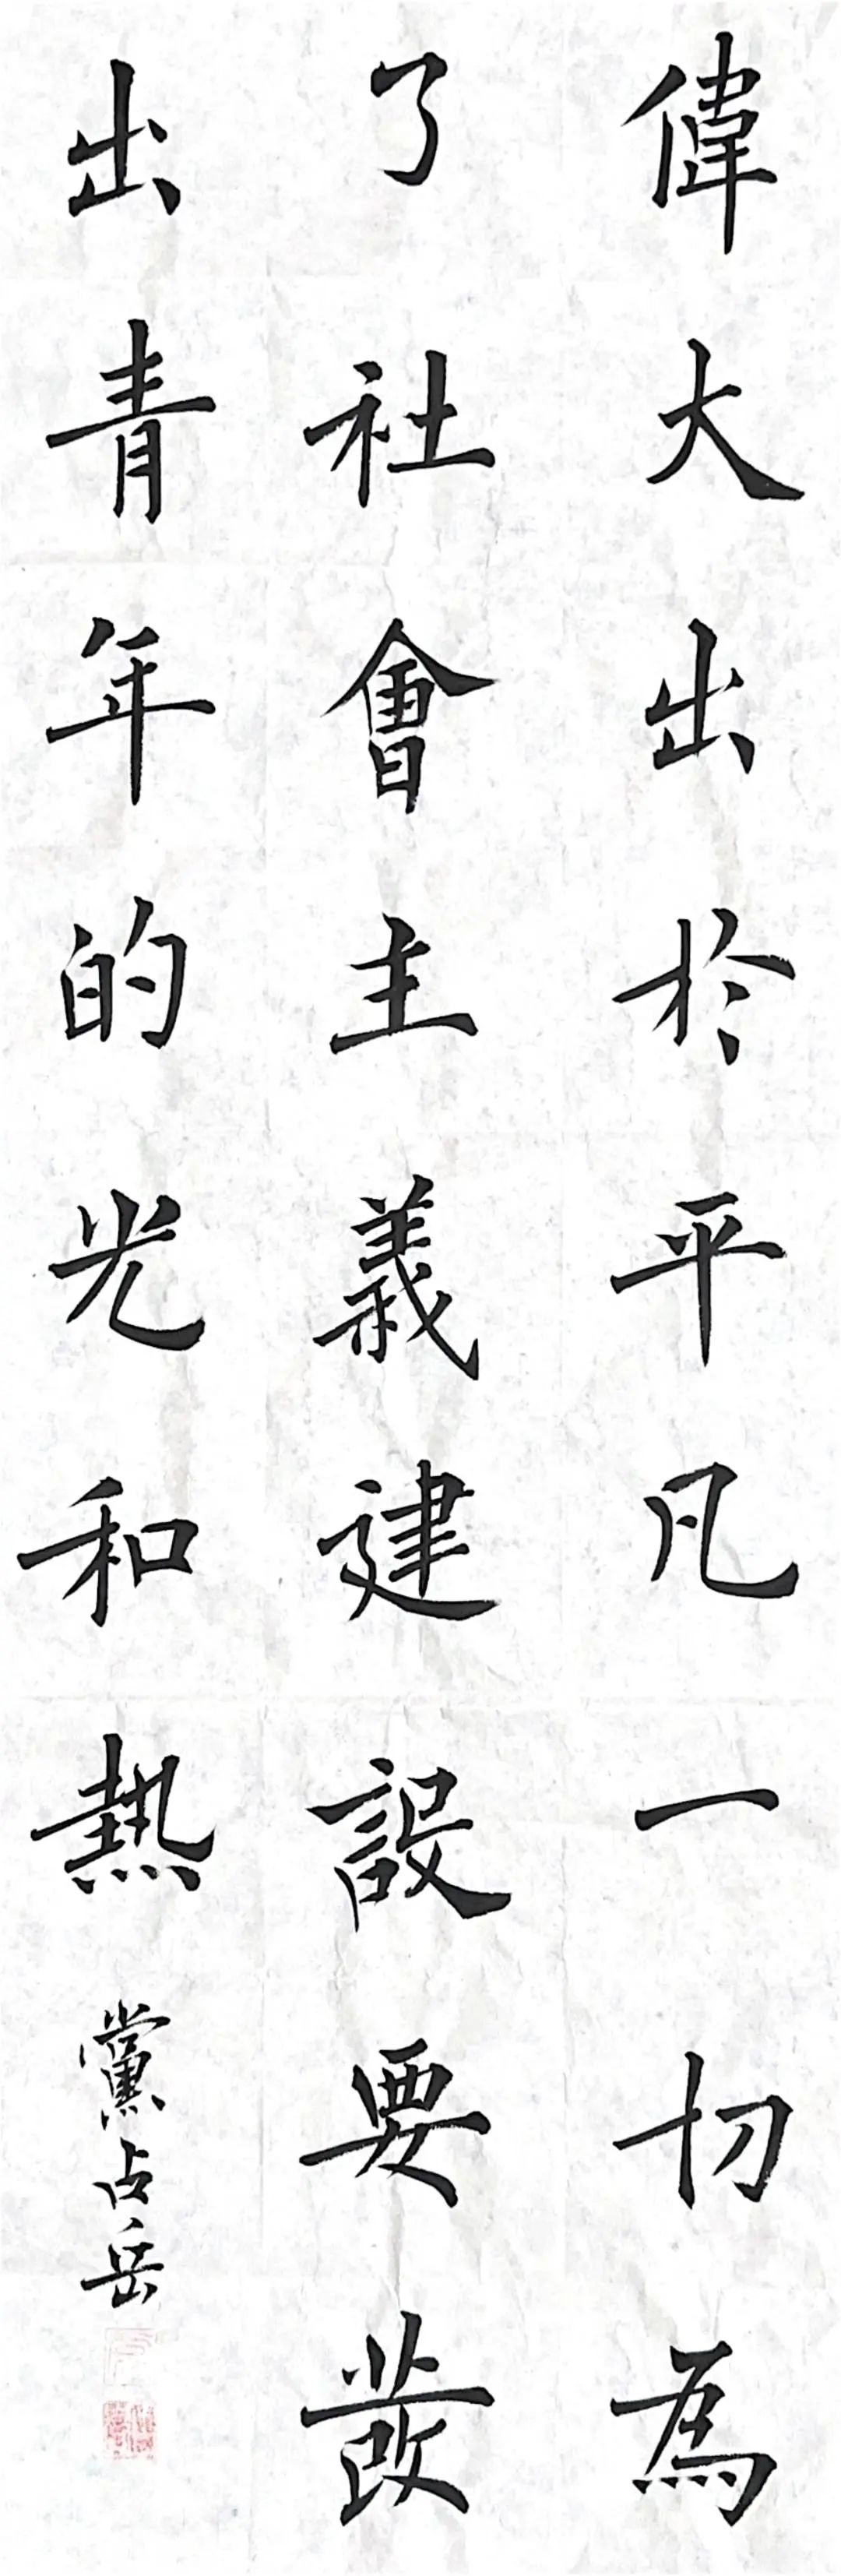 偉大出於平凡一切為
了社會主義建設要發
出青年的光和熱
黨占岳